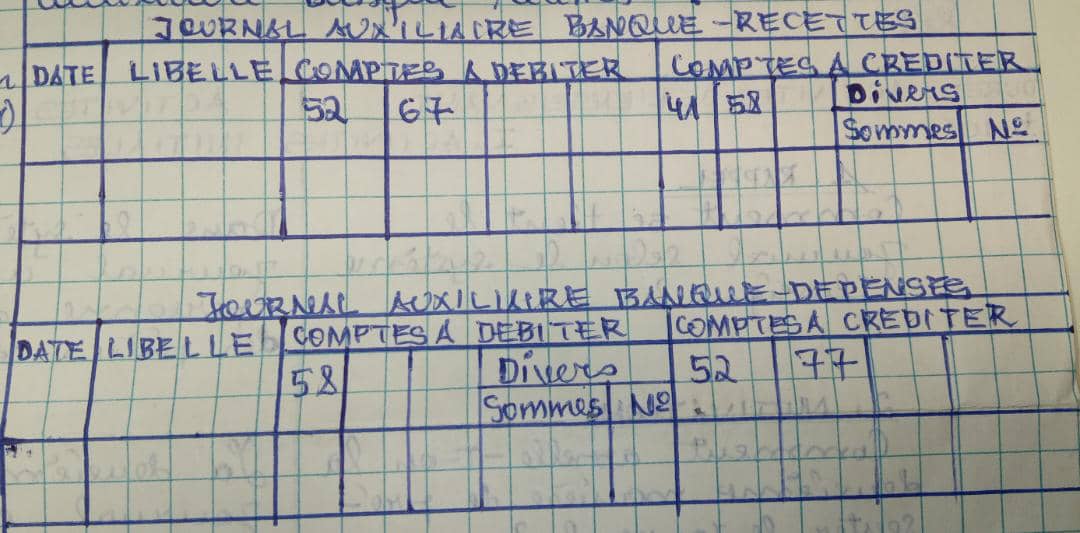 JOURNAL AUXILIAIRE BANQUE - RECETTES
DATE LIBELLE COMPTES A DEBITER COMPTES A CREDITER
52 67 41 58 Divers
Sommes No
JOURNAL AUXILIAIRE BANQUE - DEPENSES
DATE LIBELLE COMPTES A DEBITER COMPTES A CREDITER
58 Divers 52 77
Sommes No